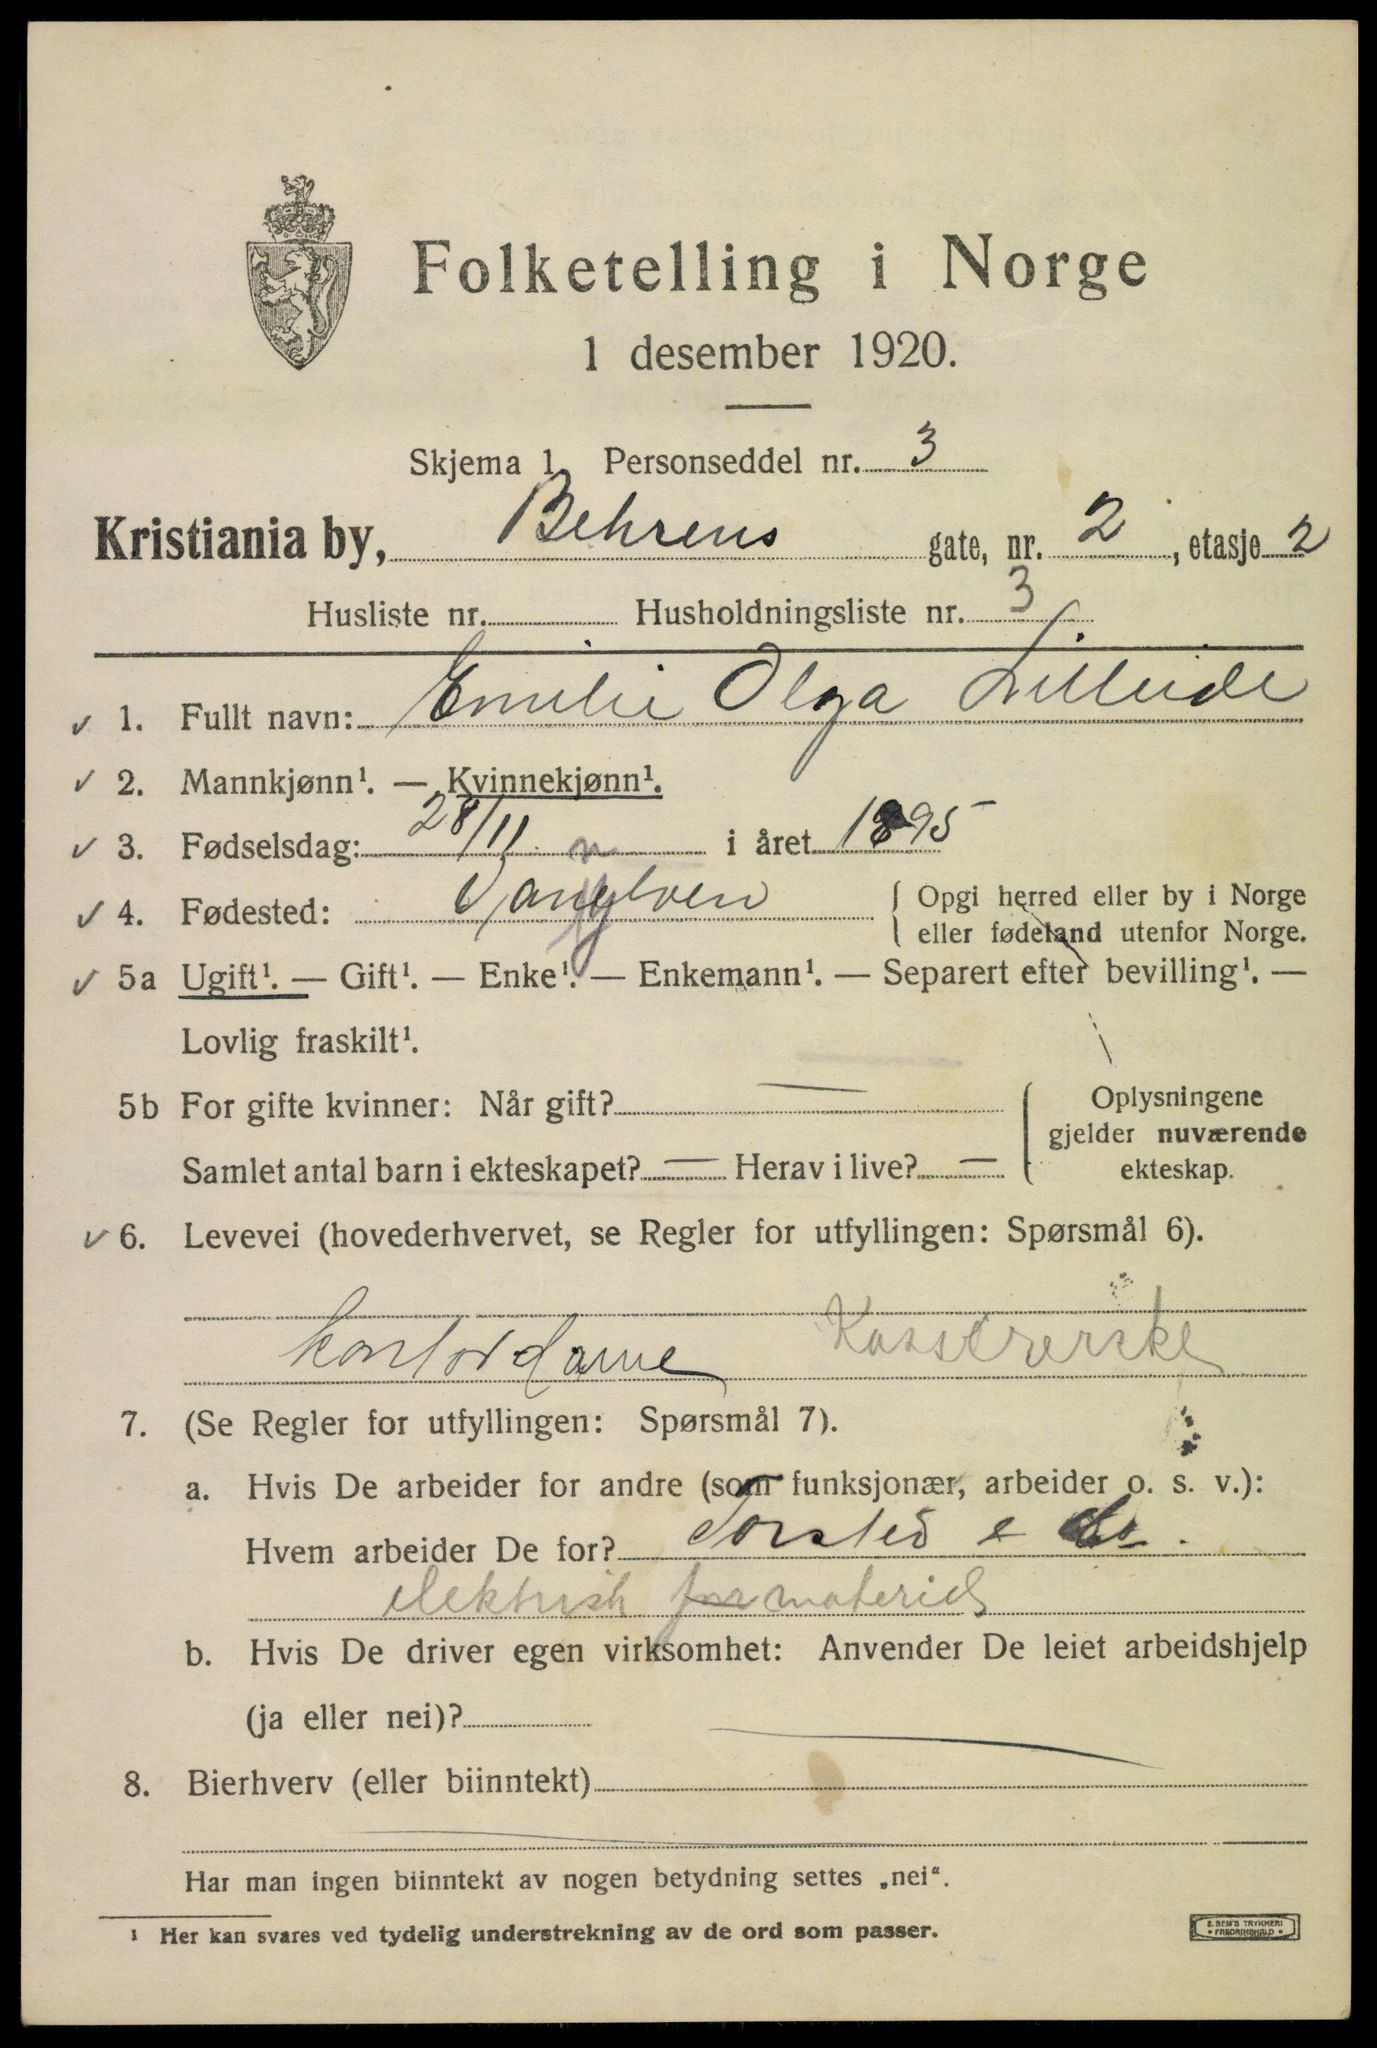 Folketelling i Norge
1 desember 1920.
Skjema 1 Personseddel nr. 3
Kristiania by, Behrens gate, nr. 2, etasje 2
Husliste nr. Husholdningsliste nr. 3
✓ 1. Fullt navn: Emilie Olga Lilleide
✓ 2. Mannkjønn¹. — Kvinnekjønn¹.
✓ 3. Fødselsdag: 28/11 i året 1895
✓ 4. Fødested: { Opgi herred eller by i Norge
eller fødeland utenfor Norge.
✓ 5a Ugift¹. — Gift¹. — Enke¹. — Enkemann¹. — Separert efter bevilling¹. —
Lovlig fraskilt¹.
5b For gifte kvinner: Når gift? — { Oplysningene
gjelder nuværende
Samlet antal barn i ekteskapet? — Herav i live? — ekteskap.
✓ 6. Levevei (hovederhvervet, se Regler for utfyllingen: Spørsmål 6).
kontordame Kassererske
7. (Se Regler for utfyllingen: Spørsmål 7).
a. Hvis De arbeider for andre (som funksjonær, arbeider o. s. v.):
Hvem arbeider De for? & Co.
elektrisk for materiel
b. Hvis De driver egen virksomhet: Anvender De leiet arbeidshjelp
(ja eller nei)? —
8. Bierhverv (eller biinntekt) —
Har man ingen biinntekt av nogen betydning settes „nei“.
¹ Her kan svares ved tydelig understrekning av de ord som passer.
E. SEM'S TRYKKERI
• FREDRIKSHALD •